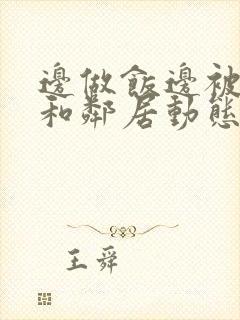 邊做飯邊被
和鄰居動態
王舜